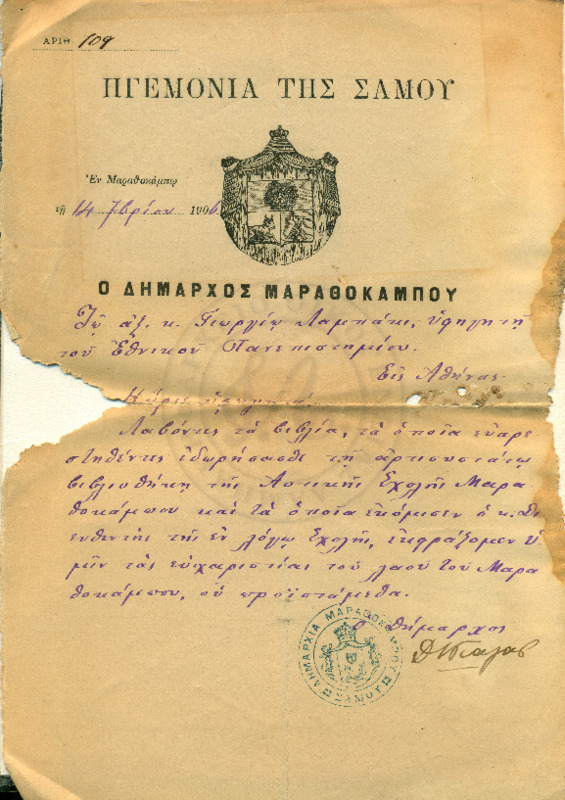 ΑΡΙΘ. 109
ΗΓΕΜΟΝΙΑ ΤΗΣ ΣΑΜΟΥ
Ἐν Μαραθοκάμπῳ
τῇ 14 7βρίου 1906
Ο ΔΗΜΑΡΧΟΣ ΜΑΡΑΘΟΚΑΜΠΟΥ
Τῷ ἀξ. κ. Γεωργίῳ Λαμπάκι, ὑφηγητῇ
τοῦ Ἐθνικοῦ Πανεπιστημίου.
Εἰς Ἀθήνας
Κύριε ὑφηγητά!
Λαβόντες τὰ βιβλία, τὰ ὁποῖα εὐαρε
στηθέντες ἐδωρήσασθε τῇ ἀρτισυστάτῳ
βιβλιοθήκῃ τῆς Ἀστικῆς Σχολῆς Μαρα
θοκάμπου καὶ τὰ ὁποῖα ἐκόμισεν ὁ κ. Δι
ευθυντὴς τῆς ἐν λόγῳ Σχολῆς, ἐκφράζομεν ὑ
μῖν τὰς εὐχαριστίας τοῦ λαοῦ τοῦ Μαρα
θοκάμπου, οὗ προϊστάμεθα.
ὁ δήμαρχος
ΔΗΜΑΡΧΙΑ ΜΑΡΑΘΟΚΑΜΠΟΥ
ΣΑΜΟΥ